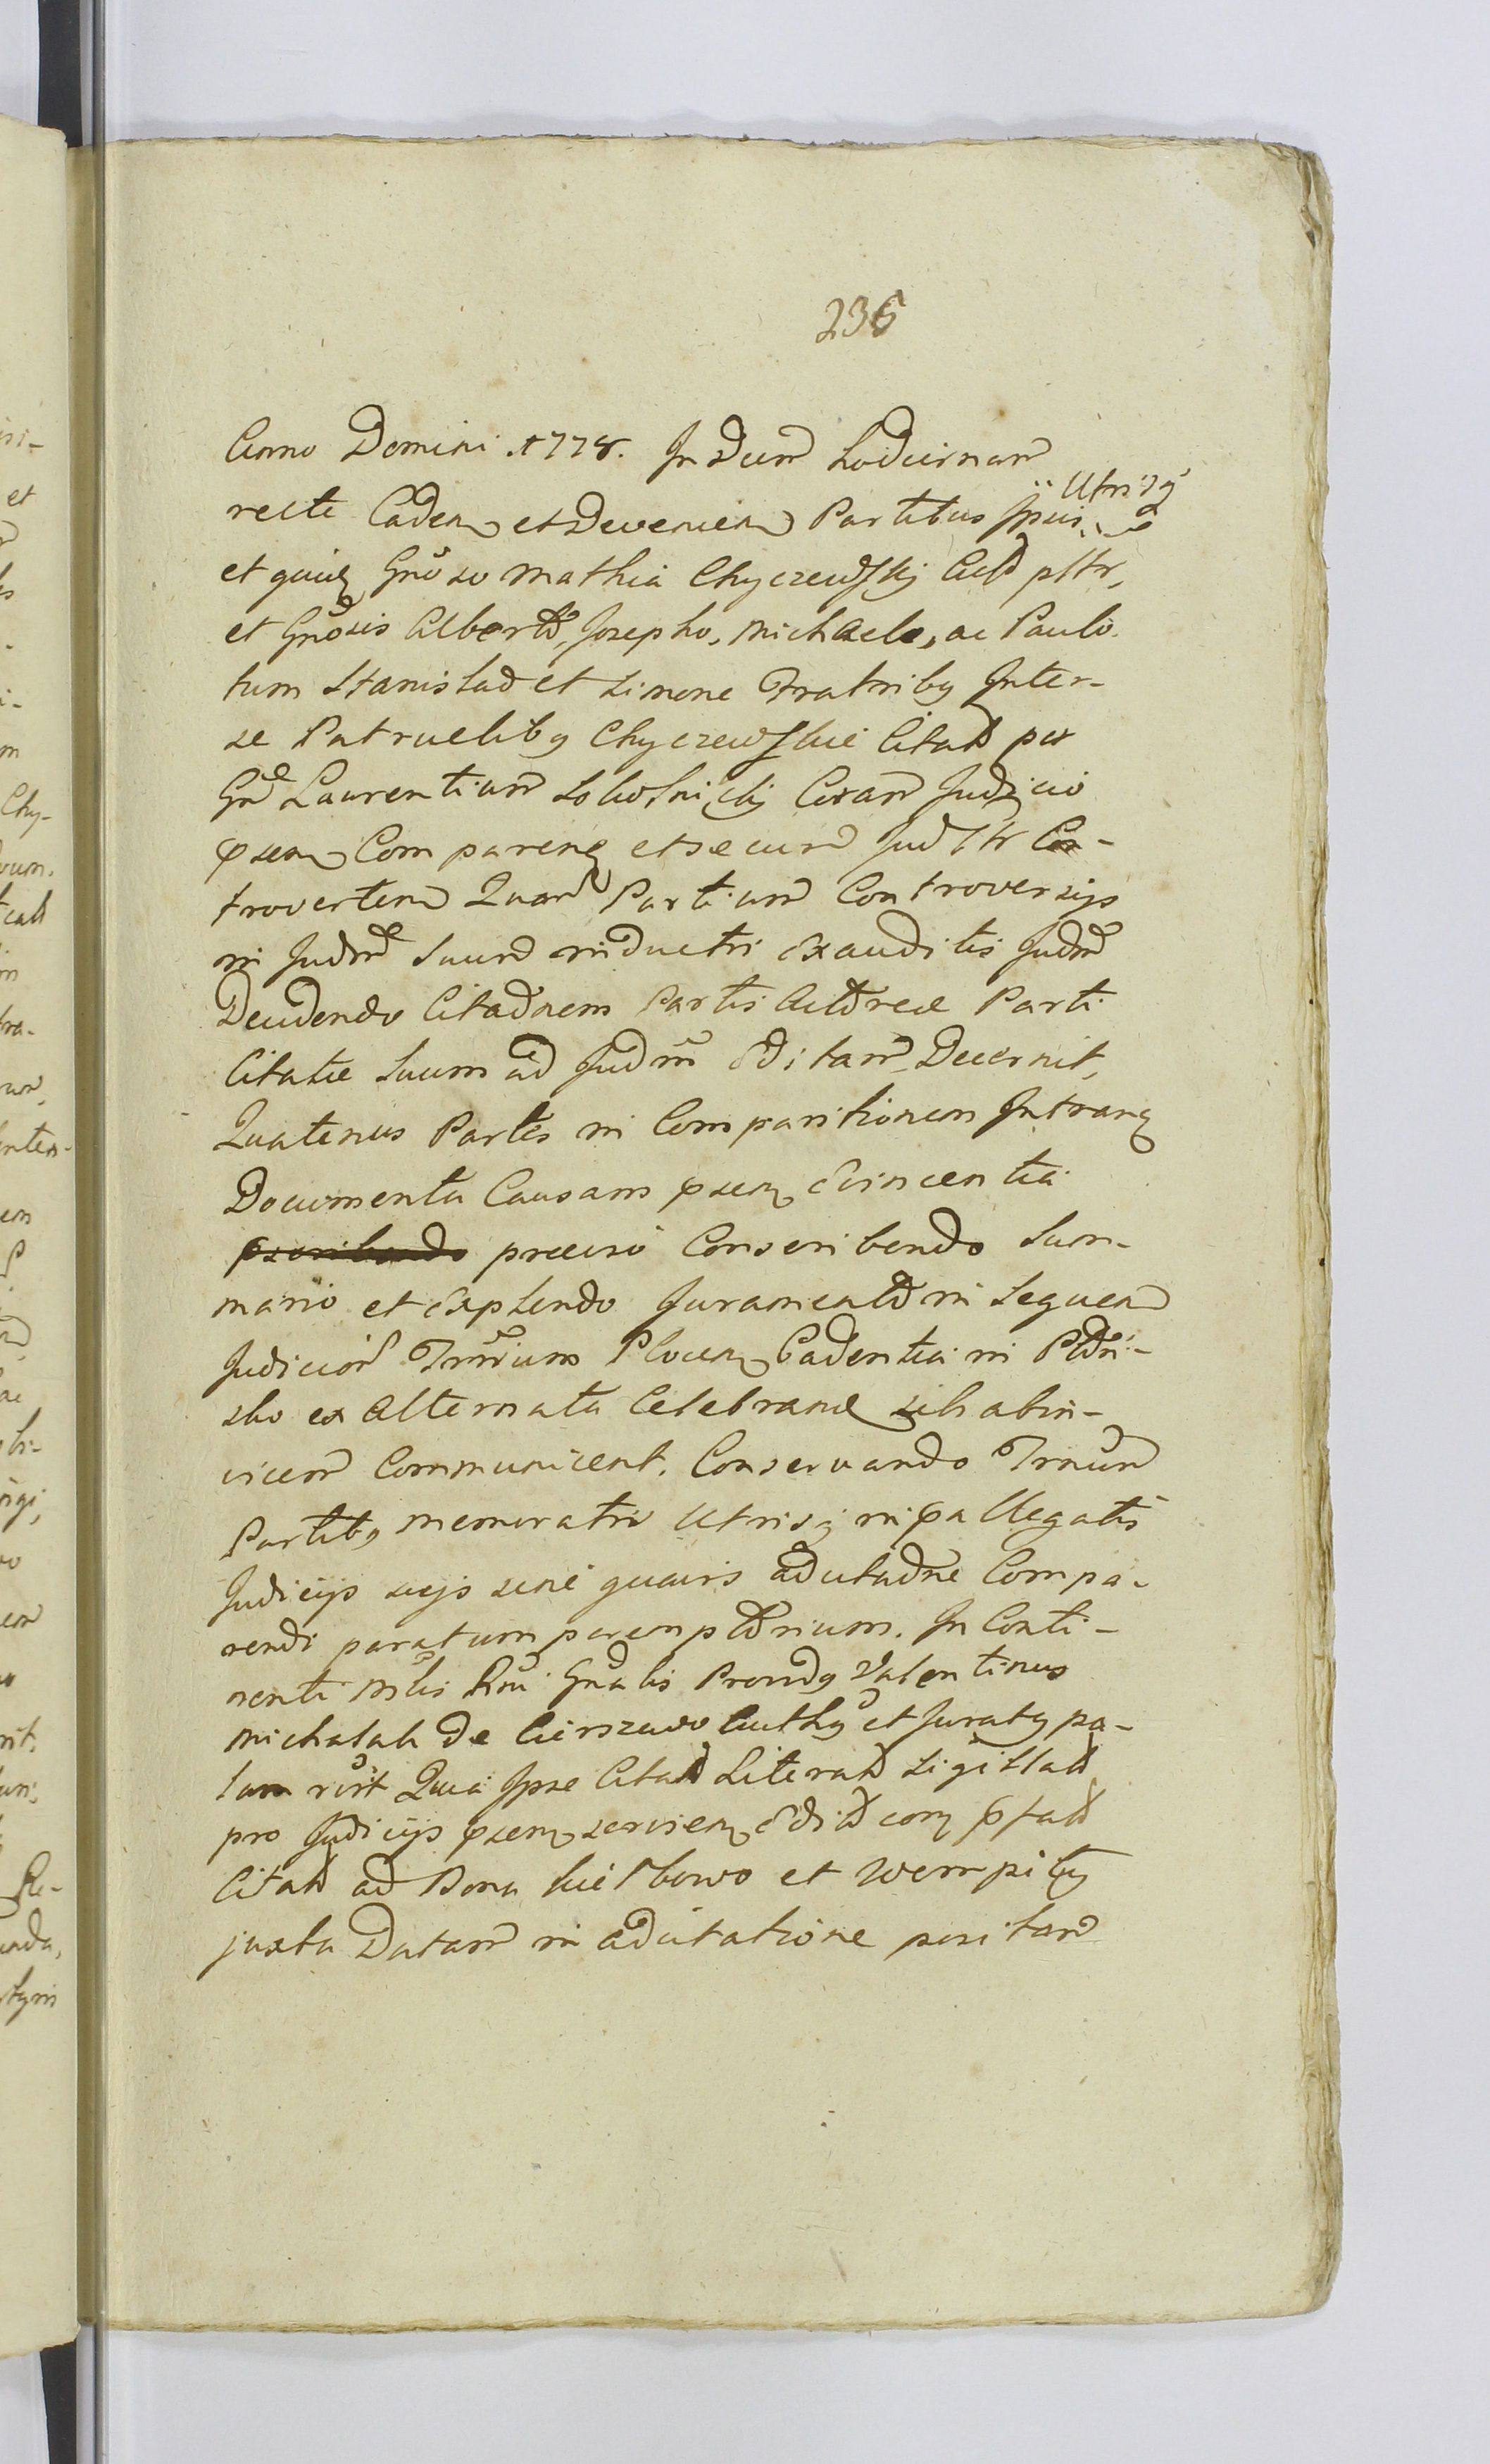 236
Anno Domini 1778. In Diem Hodiernam
recte Caden et Devenien Partibus Ipsis Utrisq
et quidem Gnoso Mathia Chyczewskij Actd
et Gnosis Alberto, Josepho, Michaele, ac Paulo
tum Stanislao et Simone Fratribq Inter-
se Patruelibq Chyczewskie Citatis per
Gnd Laurentium Coram Judicio
psen Comparenq et secum Judtr Con-
troverten Quarum Partium Controversijs
in Judm Suum inductis Exauditis Judm
Decidendo Citadnem Partis Actoreae Parti
Citatae Suum ad Judm Editam Decernit,
Quatenus Partes in Comparitionem Intranq
Documenta Causam psen Evincentia
praeciso Conscribendo Sum-
mario et Explendo Juramento in Sequen
Judicior Trrium Plocen Cadentia in
sko ex Alternata Celebrand sibi abin-
vicem Communicent. Conservando Trnum
Partibq memoratis Utrisq in pallegatis
Judicijs suijs sine quavis adcitadne Compa-
rendi paratum peremptorium. In Conti-
nenti Mlis Rni Gnalis Providq Valentinus
Michalak de Cierszewo Authq et Juratq pa-
lam rcvit Quia Ipse Citad Literad Sigillad
pro Judicijs psen servien Edid cor pfad
Citad ad Bona Kiełbowo et Wempiły
juxta Datam in adcitatione positam